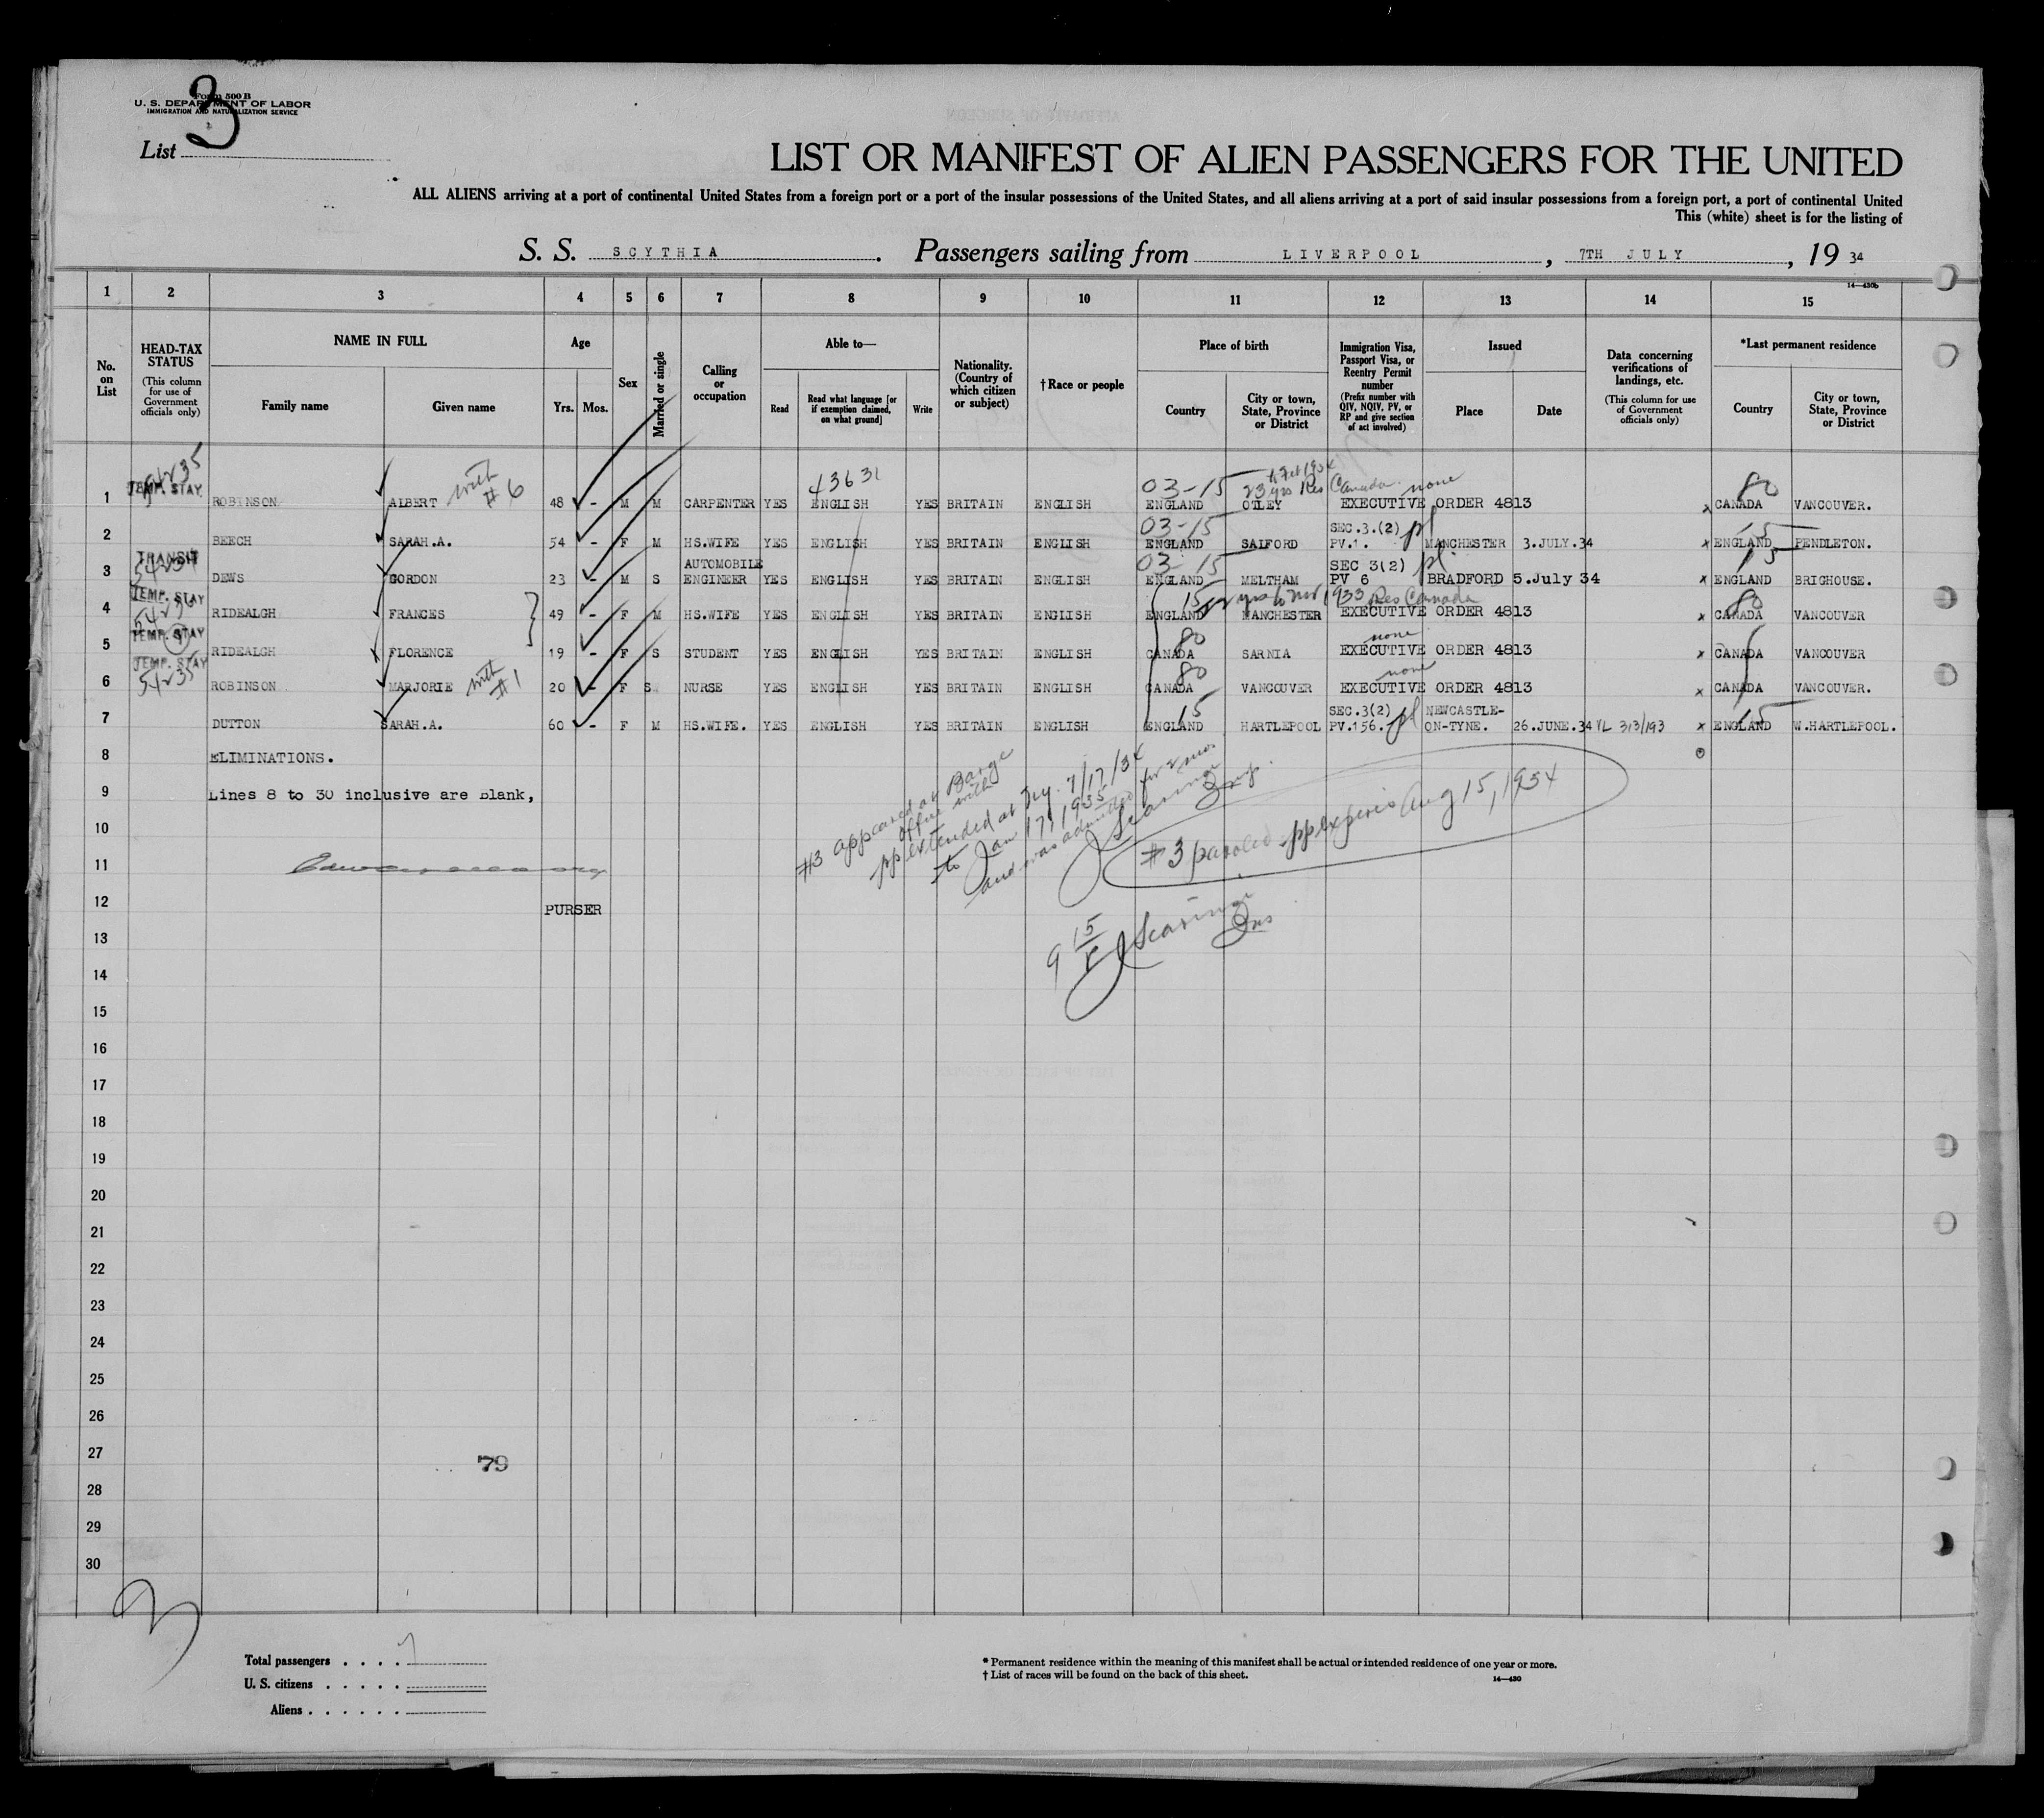 3
Form 500 B
U. S. DEPARTMENT OF LABOR
IMMIGRATION AND NATURALIZATION SERVICE
List
LIST OR MANIFEST OF ALIEN PASSENGERS FOR THE UNITED
ALL ALIENS arriving at a port of continental United States from a foreign port or a port of the insular possessions of the United States, and all aliens arriving at a port of said insular possessions from a foreign port, a port of continental United
This (white) sheet is for the listing of
S. S. SCYTHIA. Passengers sailing from LIVERPOOL, 7TH JULY, 19 34
14—430b
1 2 3 4 5 6 7 8 9 10 11 12 13 14 15
No. on List
HEAD-TAX STATUS (This column for use of Government officials only)
NAME IN FULL
Family name Given name
Age
Yrs. Mos.
Sex
Married or single
Calling or occupation
Able to—
Read Read what language [or if exemption claimed, on what ground] Write
Nationality. (Country of which citizen or subject)
† Race or people
Place of birth
Country City or town, State, Province or District
Immigration Visa, Passport Visa, or Reentry Permit number (Prefix number with QIV, NQIV, PV, or RP and give section of act involved)
Issued
Place Date
Data concerning verifications of landings, etc. (This column for use of Government officials only)
*Last permanent residence
Country City or town, State, Province or District
43631 03-15 23 yrs Res Canada none 80
1 TEMP. STAY ROBINSON ALBERT with #6 48 - M M CARPENTER YES ENGLISH YES BRITAIN ENGLISH ENGLAND OTLEY EXECUTIVE ORDER 4813 x CANADA VANCOUVER.
03-15 SEC.3.(2) 15
2 BEECH SARAH.A. 54 - F M HS.WIFE YES ENGLISH YES BRITAIN ENGLISH ENGLAND SALFORD PV.1. MANCHESTER 3.JULY.34 x ENGLAND PENDLETON.
TRANSIT AUTOMOBILE 03-15 SEC 3(2) 15
3 DEWS GORDON 23 - M S ENGINEER YES ENGLISH YES BRITAIN ENGLISH ENGLAND MELTHAM PV 6 BRADFORD 5.July 34 x ENGLAND BRIGHOUSE.
TEMP. STAY 15 1933 Res Canada 80
4 RIDEALGH FRANCES 49 - F M HS.WIFE YES ENGLISH YES BRITAIN ENGLISH ENGLAND MANCHESTER EXECUTIVE ORDER 4813 x CANADA VANCOUVER
TEMP. STAY 80 none
5 RIDEALGH FLORENCE 19 - F S STUDENT YES ENGLISH YES BRITAIN ENGLISH CANADA SARNIA EXECUTIVE ORDER 4813 x CANADA VANCOUVER
TEMP. STAY 80 none
6 54235 ROBINSON MARJORIE with #1 20 - F S NURSE YES ENGLISH YES BRITAIN ENGLISH CANADA VANCOUVER EXECUTIVE ORDER 4813 x CANADA VANCOUVER.
15 SEC.3(2) NEWCASTLE- 15
7 DUTTON SARAH.A. 60 - F M HS.WIFE. YES ENGLISH YES BRITAIN ENGLISH ENGLAND HARTLEPOOL PV.156. ON-TYNE. 26.JUNE.34 VL 313/193 x ENGLAND W.HARTLEPOOL.
8 ELIMINATIONS.
9 Lines 8 to 30 inclusive are blank,
#3 appeared at Barge
office with
pp extended at N.Y. 7/17/34
to Jan 17, 1935
and was admitted for 2 mos
#3 paroled. pp expires Aug 15, 1934
10
11
12 PURSER
13
14
15
16
17
18
19
20
21
22
23
24
25
26
27
79
28
29
30
Total passengers . . . . 7
U. S. citizens . . . . .
Aliens . . . . . .
* Permanent residence within the meaning of this manifest shall be actual or intended residence of one year or more.
† List of races will be found on the back of this sheet.
14—430